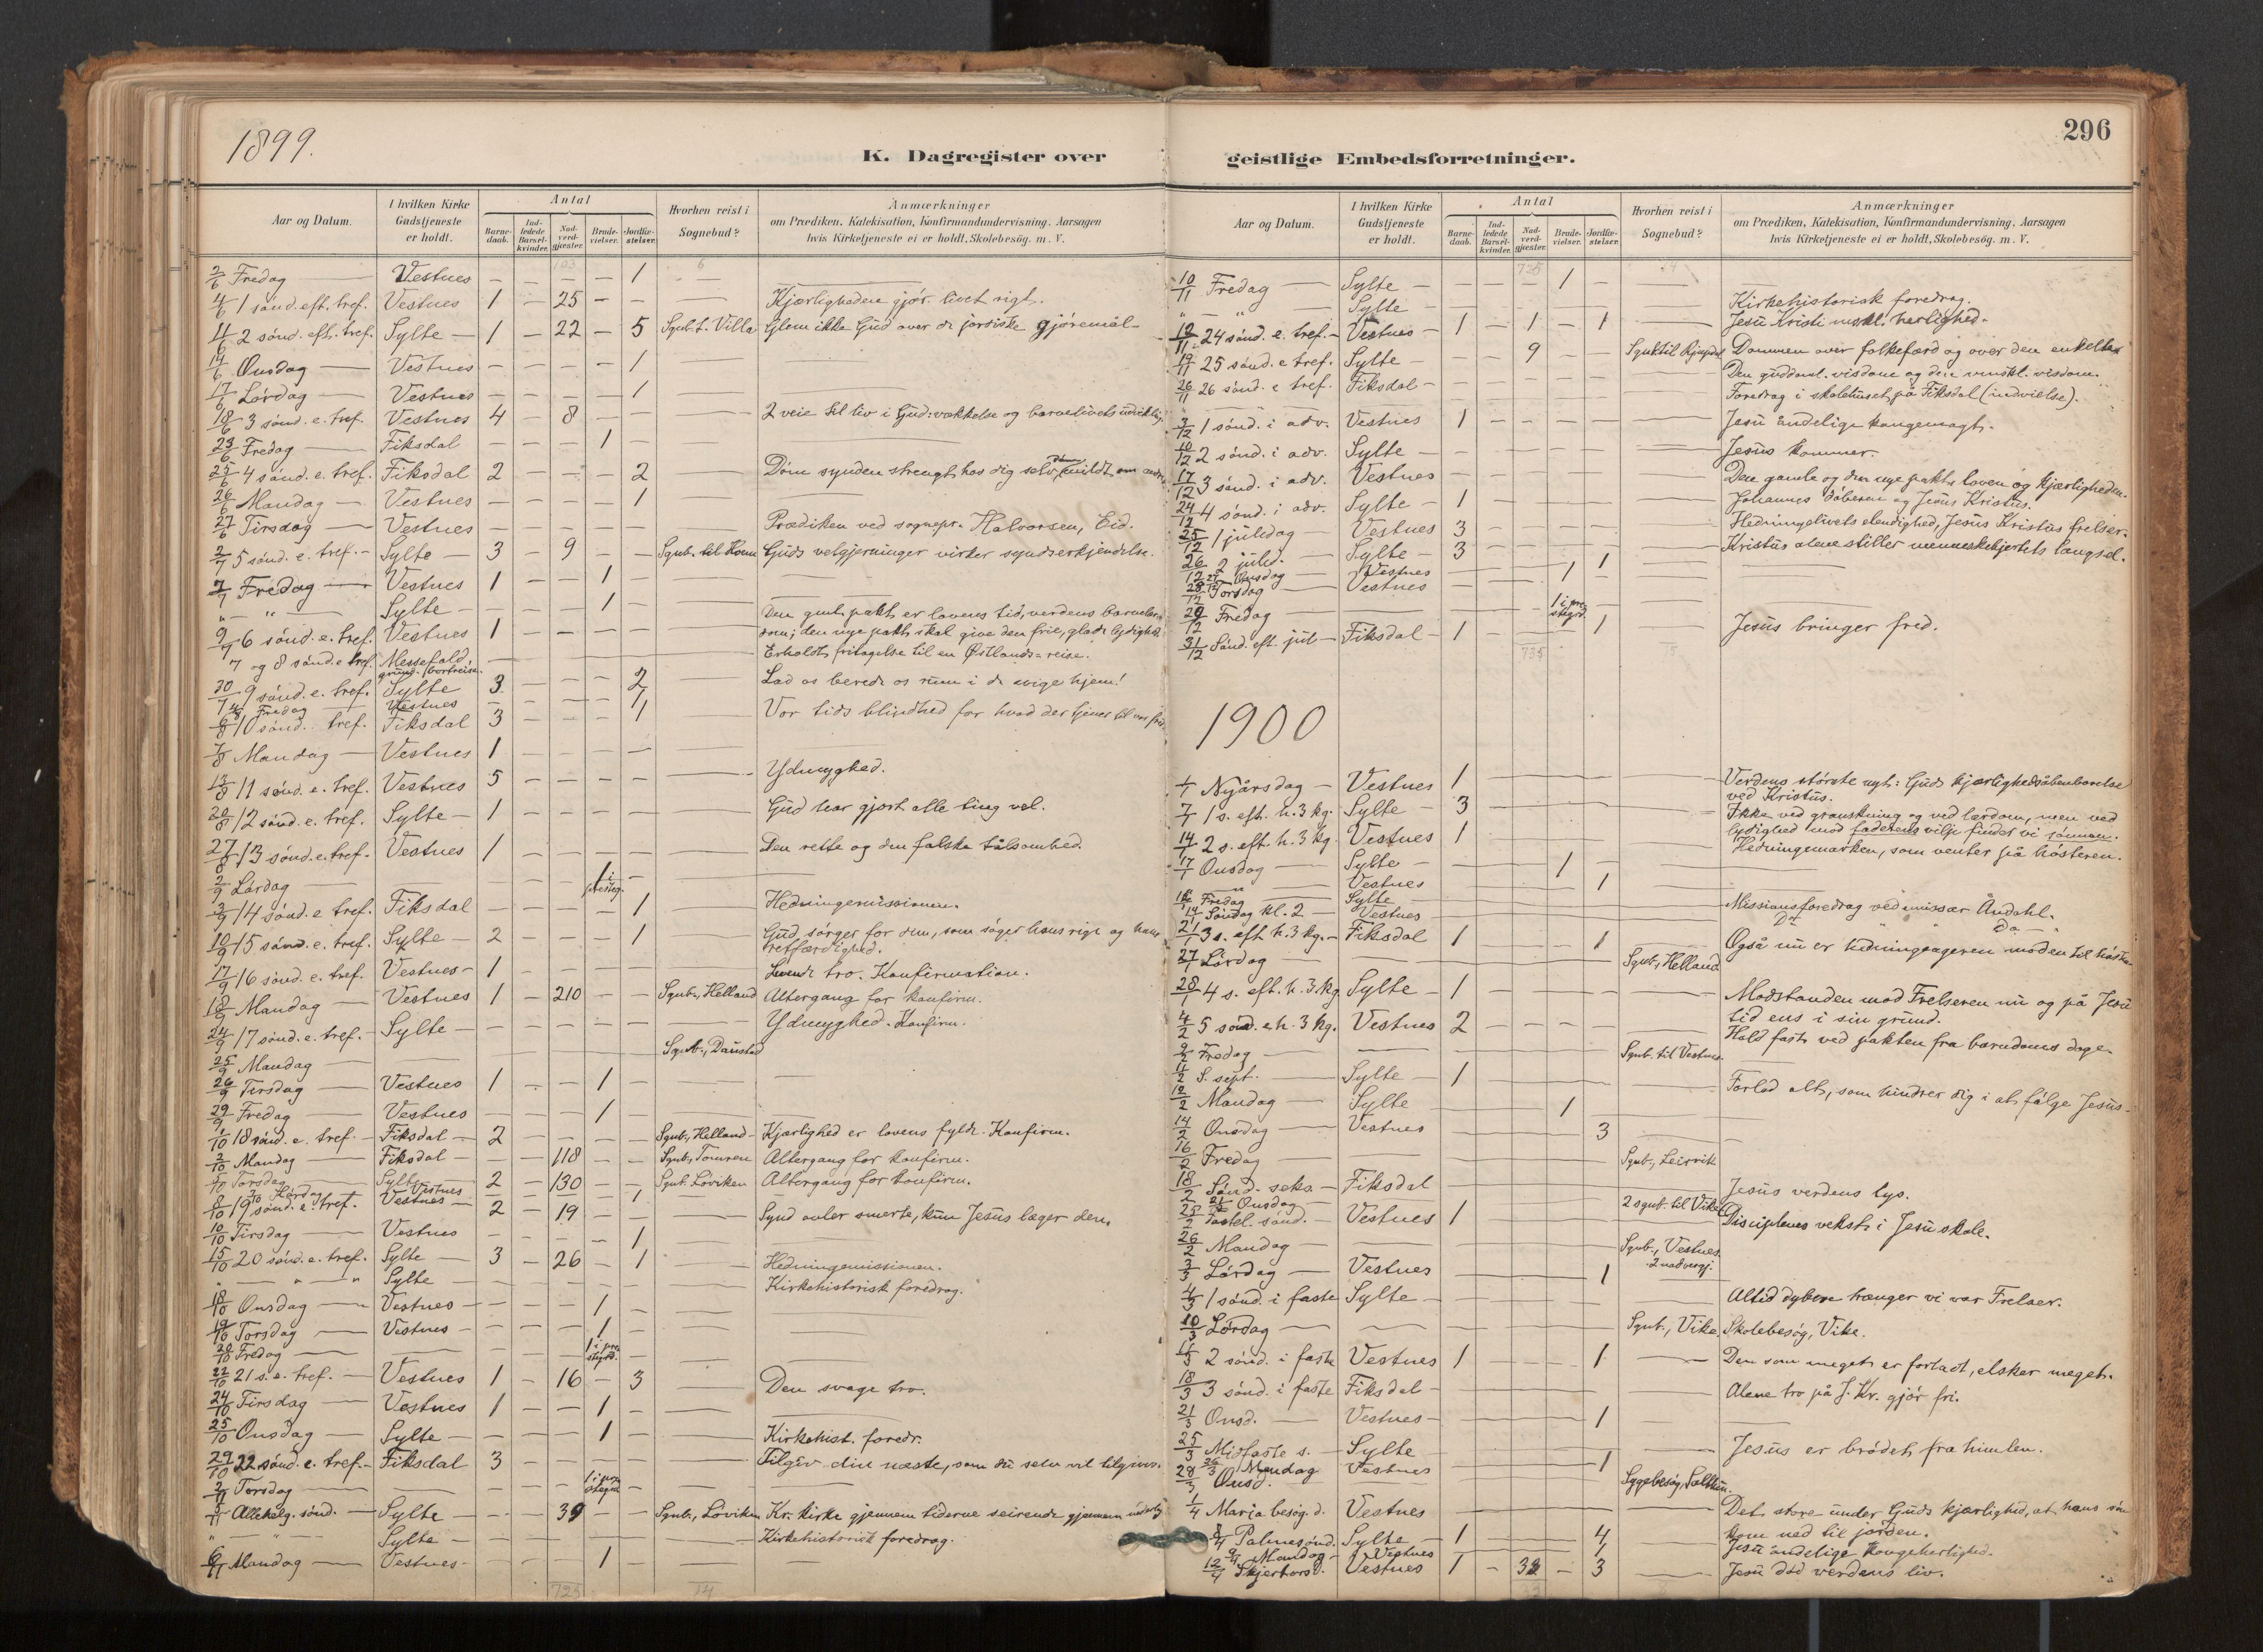 1899.
K. Dagregister over
Aar og Datum.
I hvilken Kirke Gudstjeneste er holdt.
Antal
Barnedaab.
Indledede Barselkvinder.
Nadverdgjæster.
Brudevielser.
Jordfæstelser.
Hvorhen reist i Sognebud?
Anmærkninger
om Prædiken, Katekisation, Konfirmandundervisning, Aarsagen
hvis Kirketjeneste ei er holdt, Skolebesög. m. V.
2/6 Fredag — Vestnes — — — — 1 —
4/6 1 sönd. eft. tref. Vestnes 1 — 25 — — — Kjærligheden gjör livet rigt.
11/6 2 sönd. eft. tref. Sylte — 1 — 22 — 5 Sgnb. t. Villa Glem ikke Gud over de jordiske gjöremål
14/6 Onsdag — Vestnes — — — — 1 —
17/6 Lördag — Vestnes — — — — 1 —
18/6 3 sönd. e. tref. Vestnes 4 — 8 — — — 2 veie til liv i Gud: vækkelse og barnelivets udvikling
23/6 Fredag — Fiksdal — — — 1 — —
25/6 4 sönd. e. tref. Fiksdal 2 — — — 2 — Döm synden strengt hos dig selv, döm mildt om andre
26/6 Mandag — Vestnes — — — — 1 —
27/6 Tirsdag — Vestnes Prædiken ved sognepr. Halvorsen, Eid.
2/7 5 sönd. e. tref. — Sylte — 3 — 9 — — Sgnb. til Guds velgjerninger virker syndserkjendelse.
7/7 Fredag — Vestnes 1 — — 1 — —
" — " — Sylte — — — — 1 —
9/7 6 sönd. e. tref. Vestnes 1 — — — — — Den gml. pakt er lovens tid, verdens barne-
dom; den nye pakt skal give den frie, glade lydighed
7 og 8 sönd. e. tref. Messefald, grund. bortreise. Erholdt fritagelse til en Østlands-reise.
30/7 9 sönd. e. tref. Sylte 3 — — — 2 — Lad os berede os rum i de evige hjem!
4/8 Fredag — Vestnes — — — — 1
6/8 10 sönd. tref. Fiksdal 3 — — — 1 — Vor tids blindhed for hvad der tjener til vor fred
7/8 Mandag — Vestnes 1 — — — —
13/8 11 sönd. e. tref. Vestnes 5 — — — — — Ydmyghed.
20/8 12 sönd. e. tref. Sylte — 1 — — — — — Gud har gjort alle ting vel.
27/8 13 sönd. e. tref. Vestnes 1 — — — — — Den rette og den falske tålsomhed.
2/9 Lördag — — — — 1 i presteg. —
3/9 14 sönd. e. tref. Fiksdal — — — — 1 — Hedningemissionen.
10/9 15 sönd. e. tref. Sylte — 2 — — — 1 — Gud sörger for dem, som söger hans rige og hans
retfærdighed.
17/9 16 sönd. e. tref. Vestnes — 1 — — — — — Levende tro. Konfirmation.
18/9 Mandag — Vestnes 1 — 210 — — Sgnb., Helland Altergang for konfirm.
24/9 17 sönd. e. tref. — Sylte — — — — — — Ydmyghed. Konfirm.
25/9 Mandag — — Sgnb., Daustad
26/9 Tirsdag — Vestnes 1 — — 1 — —
29/9 Fredag — Vestnes — — — 1 — —
1/10 18 sönd. e. tref. — Fiksdal — 2 — — — — Sgnb., Helland — Kjærlighed er lovens fylde. Konfirm.
2/10 Mandag — Fiksdal — — — 118 — — Sgnb., Tomren Altergang for konfirm.
Torsdag — Sylte — 2 — 130 — — Sgnb. Löviken Altergang for konfirm.
7/10 Lördag Vestnes 1
8/10 19 sönd. e. tref. Vestnes — 2 — 19 — — — Synd avler smerte, kun Jesus læger dem.
10/10 Tirsdag — Vestnes — — — — 1 —
15/10 20 sönd. e. tref. Sylte — 3 — 26 — 1 — Hedningemissionen.
" — " — " Sylte — — — — — — Kirkehistorisk foredrag.
18/10 Onsdag — Vestnes — — — — 1 —
19/10 Torsdag — Vestnes — — — — 1 —
20/10 Fredag — — — — 1 i prestegrd. —
22/10 21 s. e. tref. — Vestnes 1 — 16 — 3 — Den svage tro.
24/10 Tirsdag — Vestnes 1 — — 1 — —
25/10 Onsdag — Sylte — — — — 1 — — Kirkehist. foredr.
29/10 22 sönd. e. tref. — Fiksdal 3 — — — — — Tilgiv din næste, som du selv vil tilgives.
2/11 Torsdag — — — — 1 i prestegrd —
5/11 Allehelg. sönd. — Sylte — — — 39 — — Sgnb., Löviken Kr. kirke gjennem tiderne seirende gjennem nederlag
" — " Sylte — — Kirkehistorisk foredrag.
6/11 Mandag — Vestnes — — — 1 — —
725 14
296
geistlige Embedsforretninger.
Aar og Datum.
I hvilken Kirke Gudstjeneste er holdt.
Antal
Barnedaab.
Indledede Barselkvinder.
Nadverdgjæster.
Brudevielser.
Jordfæstelser.
Hvorhen reist i Sognebud?
Anmærkninger
om Prædiken, Katekisation, Konfirmandundervisning, Aarsagen
hvis Kirketjeneste ei er holdt, Skolebesög. m. V.
10/11 Fredag — Sylte — — — — 1 — —
" — " Sylte — Kirkehistorisk foredrag.
12/11 24 sönd. e. tref. — Vestnes — 1 — 1 — 1 — Jesu Kristi herlighed.
19/11 25 sönd. e tref. Sylte — — 9 — — Dommen over folkefærd og over den enkelte
26/11 26 sönd. e tref. Fiksdal — Den guddoml. visdom og den visdom.
Foredrag i skolehuset på Fiksdal (indvielse).
3/12 1 sönd. i adv. Vestnes 1 — — — — — Jesu åndelige kongemagt.
10/12 2 sönd. i adv. Sylte — — — — — — Jesus kommer.
17/12 3 sönd. i adv. Vestnes — — — — — — Den gamle og den nye pakt: loven og kjærligheden.
24/12 4 sönd. i adv. Sylte — 1 — — — — — Johannes döberen og Jesus Kristus.
25/12 1 juledag — Vestnes 3 — — — — — Hedningelivets elendighed, Jesus Kristus frelser.
26/12 2 juled. — Sylte — 3 — — — — — Kristus alene stiller menneskehjertets længsel.
27/12 Onsdag — Vestnes — — — — 1
28/12 Torsdag — Vestnes — — — 1 —
29/12 Fredag — — — — 1 i prestegrd. —
31/12 Sönd. eft. jul — Fiksdal — 1 — — — 1 — Jesus bringer fred.
735 15
1900
1/1 Nyårsdag — Vestnes 1 — — — — — Verdens störste nyt: Guds kjærlighedsåbenbarelse
ved Kristus.
7/1 1 s. eft. h. 3 kg. Sylte — 3 — — — — — Ikke ved granskning og ved lærdom, men ved
lydighed mod faderens vilje finder vi sönnen.
14/1 2 s. eft. h. 3 kg. Vestnes 1 — — — — — Hedningemarken, som venter på hösteren.
17/1 Onsdag — Sylte — — — — 1 —
" Vestnes — 1
Fredag — Sylte — Missionsforedrag ved emissær Åndahl.
14/1 Söndag kl. 2 — Vestnes Do do — "
21/1 3 s. eft h. 3 kg. — Fiksdal 1 — — — 1 — Også nu er hedningeageren moden til höst
27/1 Lördag — — Sgnb., Helland
28/1 4 s. eft. h. 3 kg. Sylte — 1 — — — — — Modstanden mod Frelseren nu og på Jesu
tid ens i sin grund.
4/2 5 sönd. e h. 3 kg. Vestnes 2 — — — — — Hold fast ved pakten fra barndoms dage.
9/2 Fredag — — Sgnb. til Vestnes.
11/2 S. sept. — Sylte — 1 — — — — — Forlad alt, som hindrer dig i at fölge Jesus.
12/2 Mandag — Sylte — — — — 1 —
14/2 Onsdag — Vestnes — — — — 3 —
16/2 Fredag — — Sgnb., Leirvik
18/2 Sönd. seks. — Fiksdal — Jesus verdens lys.
21/2 Onsdag — 2 sgnb. til Vike
25/2 Fastel. sönd. — Vestnes 1 — — — — Disciplenes vekst i Jesu skole.
26/2 Mandag — — Sgnb., Vestnes.
2 nadvergj.
3/3 Lördag — Vestnes — — — — 1
4/3 1 sönd. i faste Sylte — — Altid dybere trænger vi vor Frelser.
10/3 Lördag — — Sgnb., Vike. Skolebesög, Vike.
11/3 2 sönd. i faste Vestnes 1 — — — 1 — Den som meget er forladt, elsker meget.
18/3 3 sönd. i faste Fiksdal — — Alene tro på J. Kr. gjör fri.
21/3 Onsd. — Vestnes — — — — 1 —
25/3 Midfaste s. — Sylte — — Jesus er brödet fra himlen.
26/3 Mandag Vestnes — 1
28/3 Onsd. — Sygebesög,
1/4 Maria besög. d. Vestnes — Det store under Guds kjærlighed, at hans sön
kom ned til jorden.
8/4 Palmesönd. Sylte — 1 — — — 4 — Jesu åndelige kongeherlighed.
9/4 Mandag — Vestnes 1
12/4 Skjertorsd. Vestnes 1 — 32 — 3 — Jesu död verdens liv.